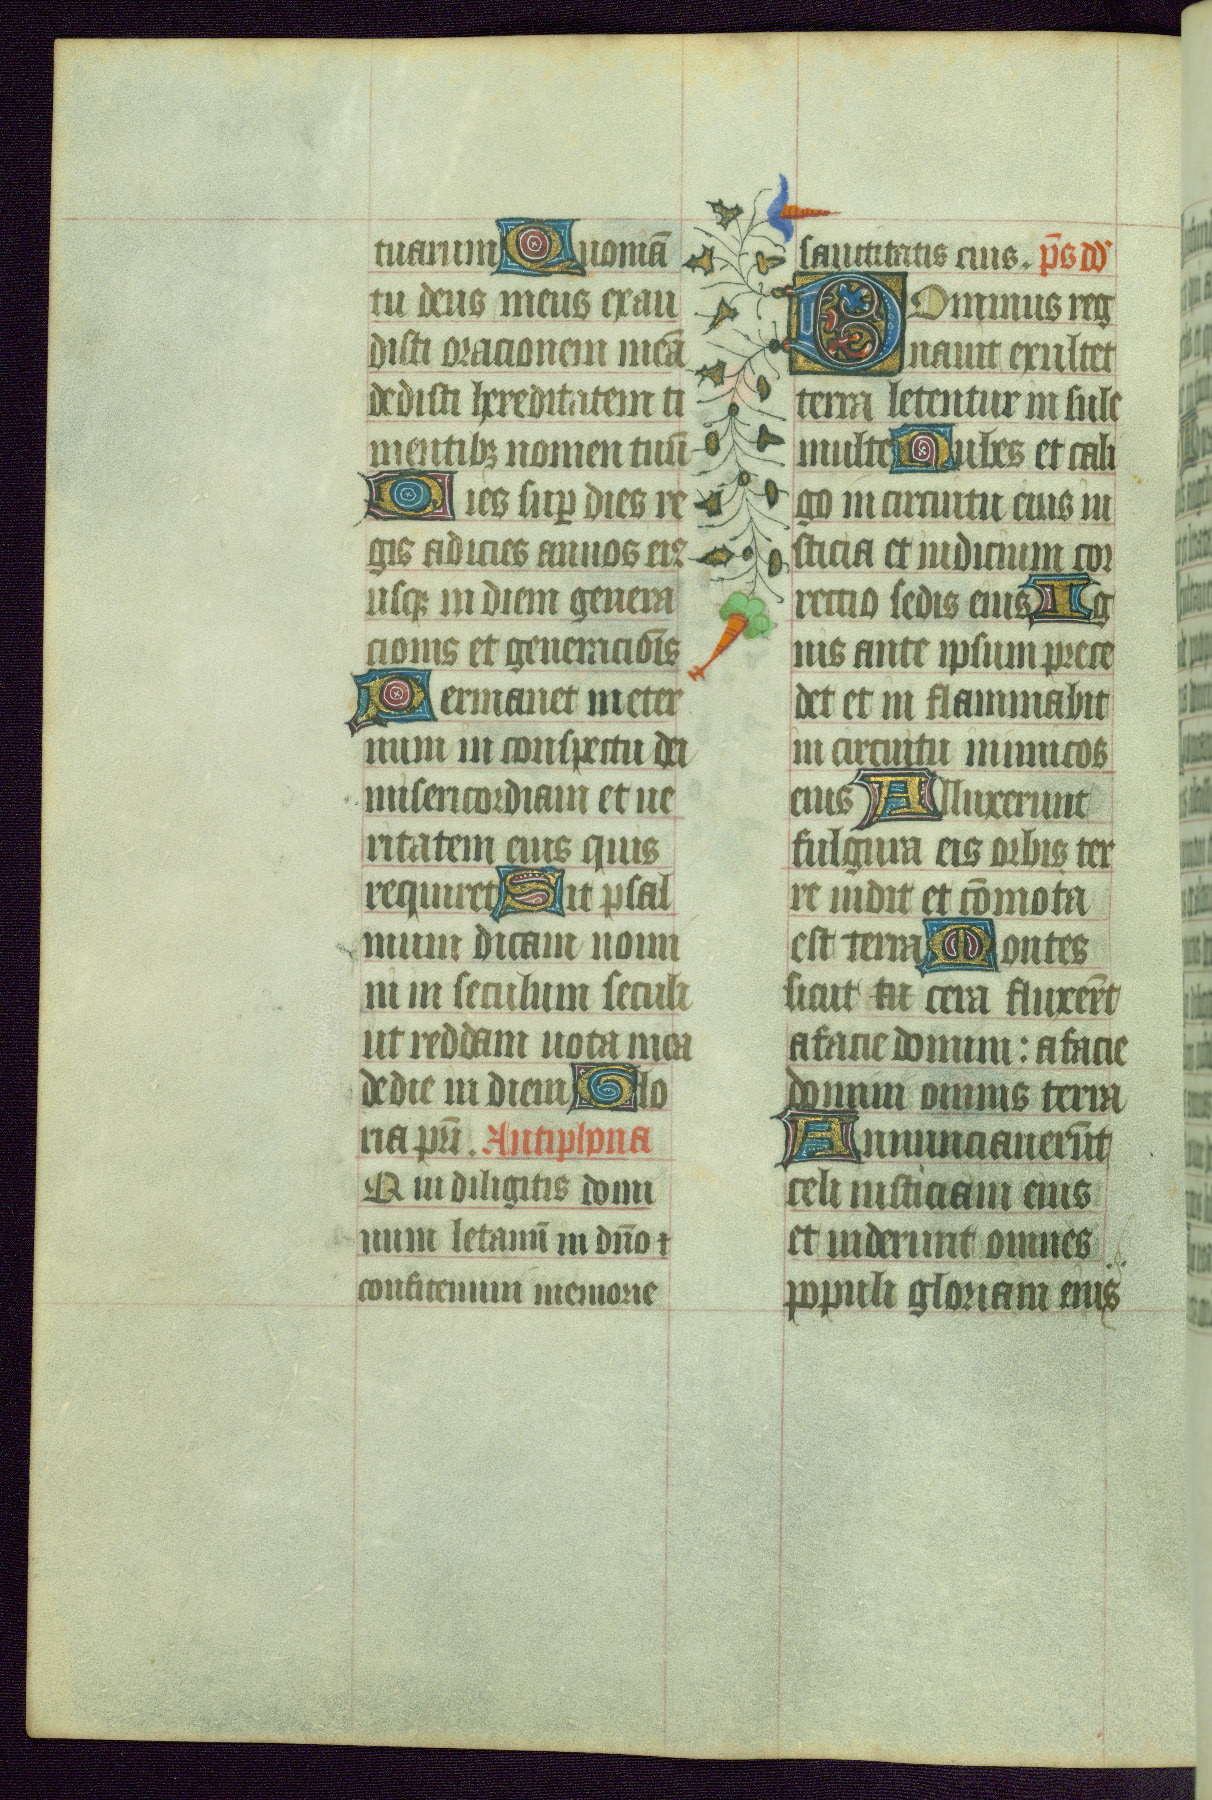 tuarum Quoniā
tu deus meus exau
disti oracionem meā
dedisti hereditatem ti
mentibꝫ nomen tuū
Dies suꝑ dies re
gis adicies annos eiꝰ
usqꝫ in diem genera
cionis et generaciōīs
Permanet in eter
num in conspectu dei
misericordiam et ue
ritatem eius quis
requiret Sit psal
mum dicam nomi
ni in seculum seculi
ut reddam uota mea
de die in diem Glo
ria pr̄i. Antiphona
Qui diligitis domi
num letamī in dn̄o ⁊
confitemini memorie
sanctitatis eius. p̄s dd̄
DOminus reg
nauit exultet
terra letentur insule
multe Nubes et cali
go in circuitu eius iu
sticia et iudicium cor
rectio sedis eius Ig
nis ante ipsum prece
det et in flammabit
in circuitu inimicos
eius Alluxerunt
fulgura eis orbis ter
re uidit et cōmota
est terra Montes
sicut cera fluxer̄t
a facie domini: a facie
domini omnis terra
Annunciauerūt
celi iusticiam eius
et uiderunt omnes
populi gloriam eius